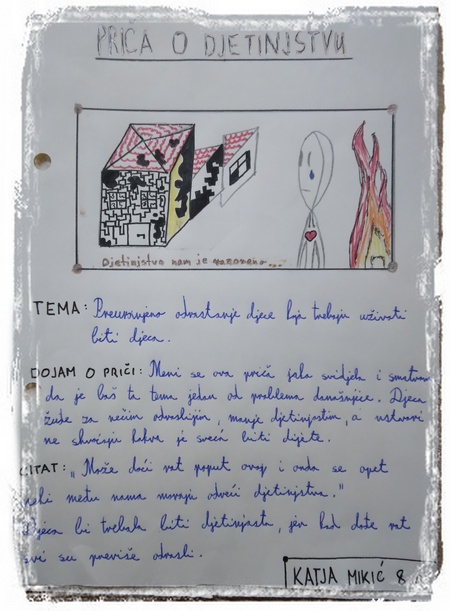 PRIČA O DJETINJSTVU
Djetinjstvo nam je razoreno...
TEMA: Preuranjeno odrastanje djece koja trebaju uživati
biti djeca.
DOJAM O PRIČI: Meni se ova priča jako svidjela i smatram
da je baš ta tema jedan od problema današnjice. Djeca
žude za nečim odraslijim, manje djetinjastim, a ustvari
ne shvaćaju kakva je sreća biti dijete.
CITAT: „Može doći rat poput ovog i onda se opet
neki među nama moraju odreći djetinjstva."
Djeca bi trebala biti djetinjasta, jer kad dođe rat
svi su previše odrasli.
KATJA MIKIĆ 8